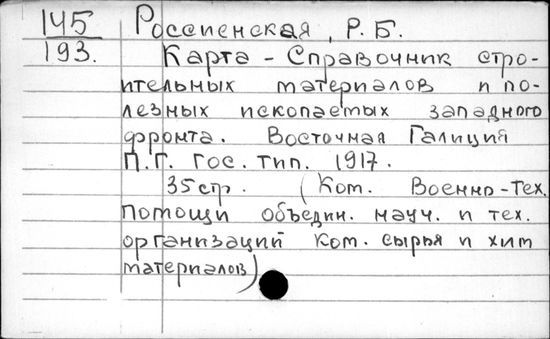 145 Россиенская, Р. Б.
193. Карта - Справочник стро-
ительных материалов и по-
лезных ископаемых западного
фронта. Восточная Галиция
П.Г. Гос. тип. 1917.
35 стр. (Ком. Военно-Тех.
помощи объедин. науч. и тех.
организаций Ком. сырья и хим
материалов)